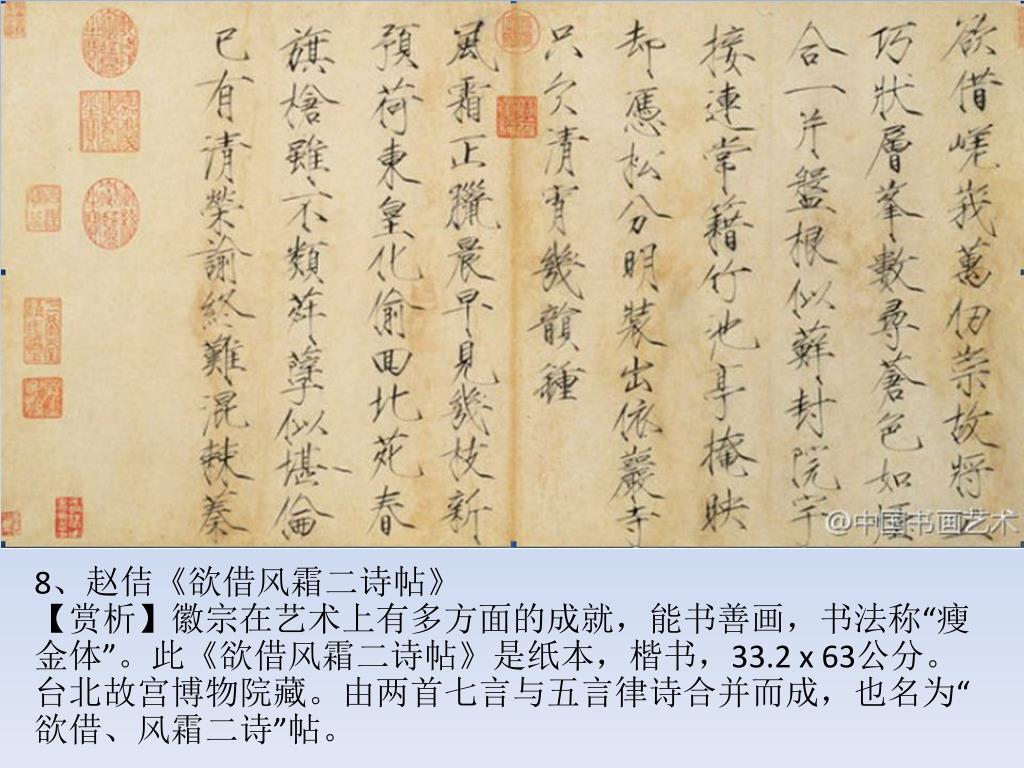 欲借嵯峩萬仞崇故將工
巧狀層峯數尋蒼色如煙
合一片盤根似蘚封院宇
接連常籍竹池亭掩映
却憑松分明裝出依巖寺
只欠清宵幾韻鍾
風霜正臘晨早見幾枝新
預荷東皇化偷回北苑春
旗槍雖不類荈孽似堪倫
已有清榮諭終難混棘蓁
@中国书画艺术
8、赵佶《欲借风霜二诗帖》
【赏析】徽宗在艺术上有多方面的成就，能书善画，书法称“瘦
金体”。此《欲借风霜二诗帖》是纸本，楷书，33.2 x 63公分。
台北故宫博物院藏。由两首七言与五言律诗合并而成，也名为“
欲借、风霜二诗”帖。